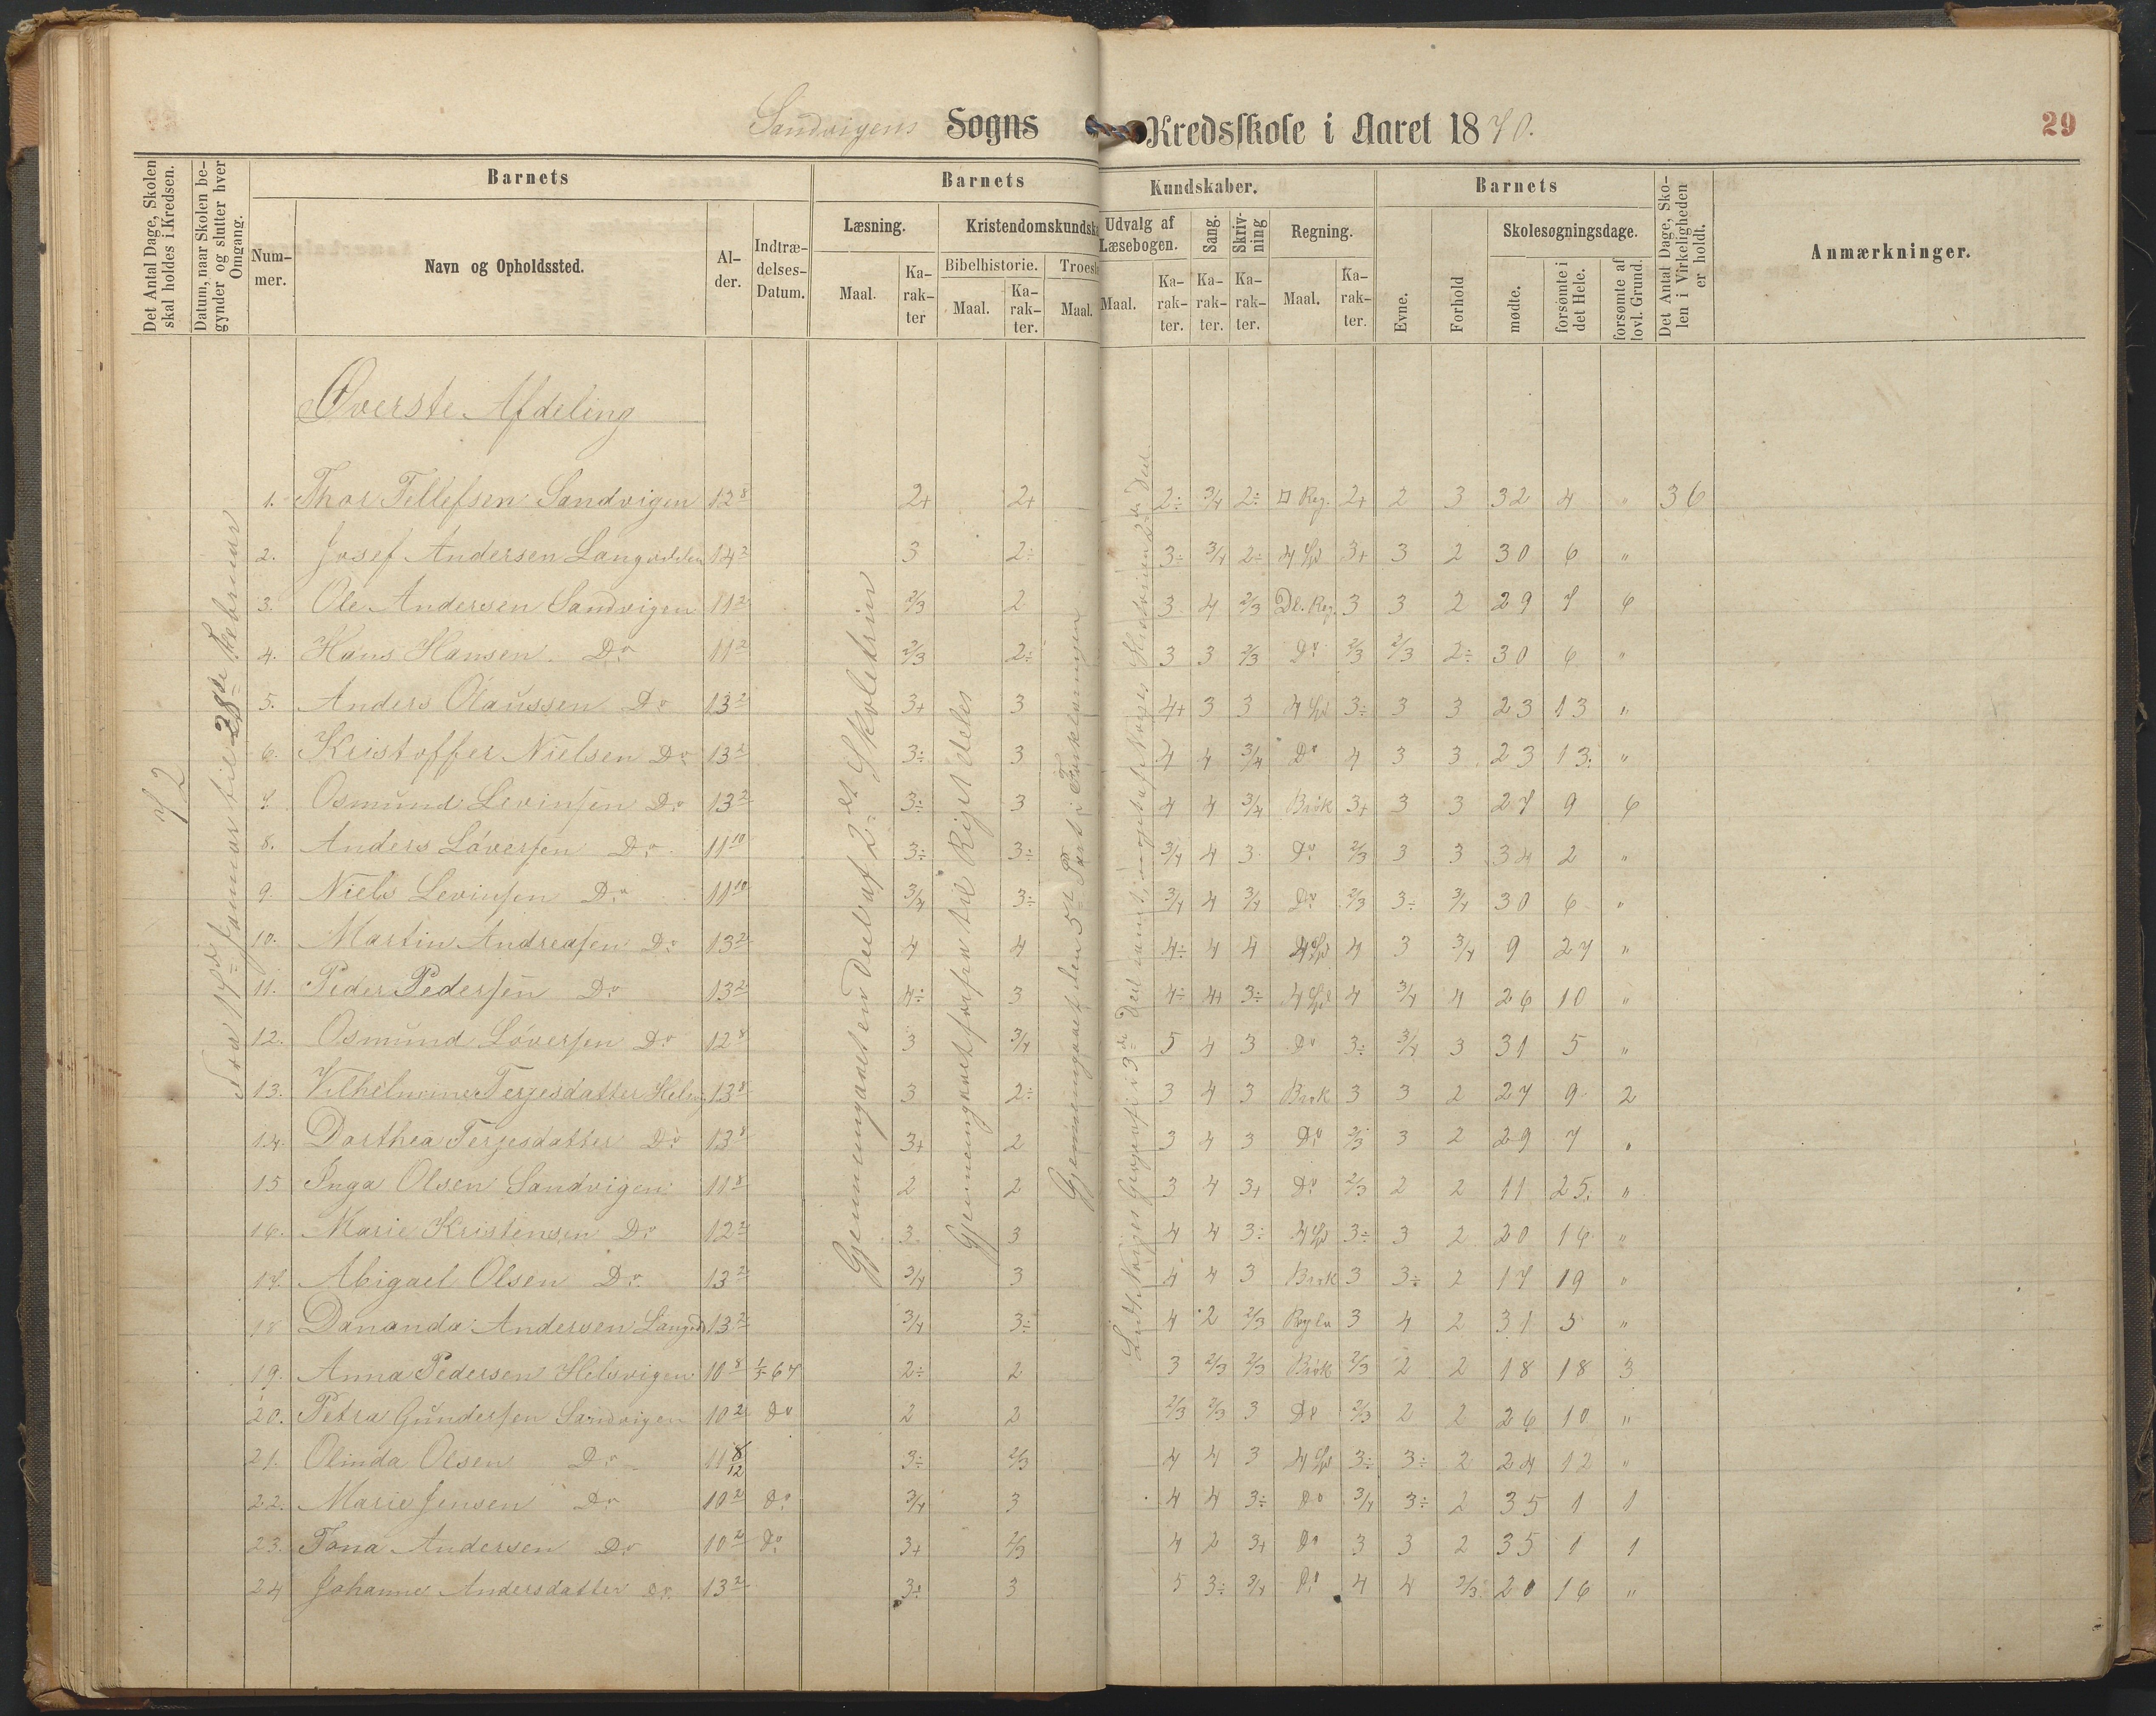 Sandvigens Sogns Kredsskole i Aaret 1870.
29
Det Antal Dage, Skolen skal holdes i Kredsen.
Datum, naar Skolen begynder og slutter hver Omgang.
Barnets
Nummer.
Navn og Opholdssted.
Alder.
Indtrædelses-Datum.
Barnets Kundskaber.
Læsning.
Maal.
Karakter
Kristendomskundsk
Bibelhistorie.
Maal.
Karakter.
Troesl
Maal.
Udvalg af Læsebogen.
Maal.
Karakter.
Sang.
Karakter.
Skrivning
Karakter.
Regning.
Maal.
Karakter.
Barnets
Evne.
Forhold
Skolesøgningsdage.
mødte.
forsømte i det Hele.
forsømte af lovl. Grund.
Det Antal Dage, Skolen i Virkeligheden er holdt.
Anmærkninger.
72
Fra 17de Januar til 28de Februar
Gjennemgaaet en Deel af 2det Skoletrin
Gjennemgaaet forfra til Riget deles
Gjennemgaaet den 5te Part i Forklaringen
Øverste Afdeling
1. Thor Tellefsen Sandvigen 12 8 2+ 2+ 2÷ 3/4 2÷ □ Reg. 2+ 2 3 32 4 " 36
2. Josef Andersen Langodden 14 2 3 2÷ 3÷ 3/4 2÷ 4 Sp 3+ 3 2 30 6 "
3. Ole Andersen Sandvigen 11 2 2/3 2 3 4 2/3 Dl. Reg. 3 3 2 29 7 6
4. Hans Hansen Do 11 2 2/3 2÷ 3 3 2/3 Do 2/3 2/3 2÷ 30 6 "
5. Anders Olaussen Do 13 2 3+ 3 4+ 3 3 4 Sp 3÷ 3 3 23 13 "
6. Kristoffer Nielsen Do 13 2 3÷ 3 4 4 3/4 Do 4 3 3 23 13 "
7. Osmund Levinsen Do 13 2 3÷ 3 4 4 3/4 Brøk 3+ 3 3 27 9 6
8. Anders Løversen Do 11 10 3÷ 3÷ 3/4 4 3 Do 2/3 3 3 34 2 "
9. Niels Levinsen Do 11 10 3/4 3÷ 3/4 4 3/4 Do 2/3 3÷ 3/4 30 6 "
10. Martin Andreasen Do 13 2 4 4 4÷ 4 4 4 Sp 4 3 3/4 9 27 "
11. Peder Pedersen Do 13 2 4÷ 3 4÷ 4+ 3÷ 4 Sp 4 3/4 4 26 10 "
12. Osmund Løversen Do 12 8 3 3/4 5 4 3 Do 3÷ 3/4 3 31 5 "
13. Vilhelmine Terjesdatter 13 8 3 2÷ 3 4 3 Brøk 3 3 2 27 9 2
14. Dorthea Terjesdatter Do 13 8 3+ 2 3 4 3 Do 2/3 3 2 29 7 "
15 Inga Olsen Sandvigen 11 8 2 2 3 4 3+ Do 2/3 2 2 11 25 "
16. Marie Kristensen Do 12 2 3 3 4 4 3÷ 4 Sp 3÷ 3 2 20 16 "
17. Abigael Olsen Do 13 2 3/4 3 4 4 3 Brøk 3 3÷ 2 17 19 "
18 Dananda Andersen Langod 13 2 3/4 3÷ 4 2 2/3 3 4 2 31 5 "
19. Anna Pedersen Helsvigen 10 8 67 2÷ 2 3 2/3 2/3 Brøk 2/3 2 2 18 18 3
20. Petra Gundersen Sandvigen 10 2 Do 2 2 2/3 2/3 3 Do 2/3 2 2 26 10 "
21. Olinda Olsen Do 11 8/12 3÷ 2/3 4 4 3 4 Sp 3÷ 3÷ 2 24 12 "
22. Marie Jensen Do 10 2 Do 3/4 3 4 4 3÷ Do 3/4 3÷ 2 35 1 1
23. Tona Andersen Do 10 2 Do 3+ 2/3 4 2 3+ Do 3 3 2 35 1 1
24 Johanne Andersdatter Do 13 2 3÷ 3 5 3÷ 3/4 Do 4 4 2/3 20 16 "